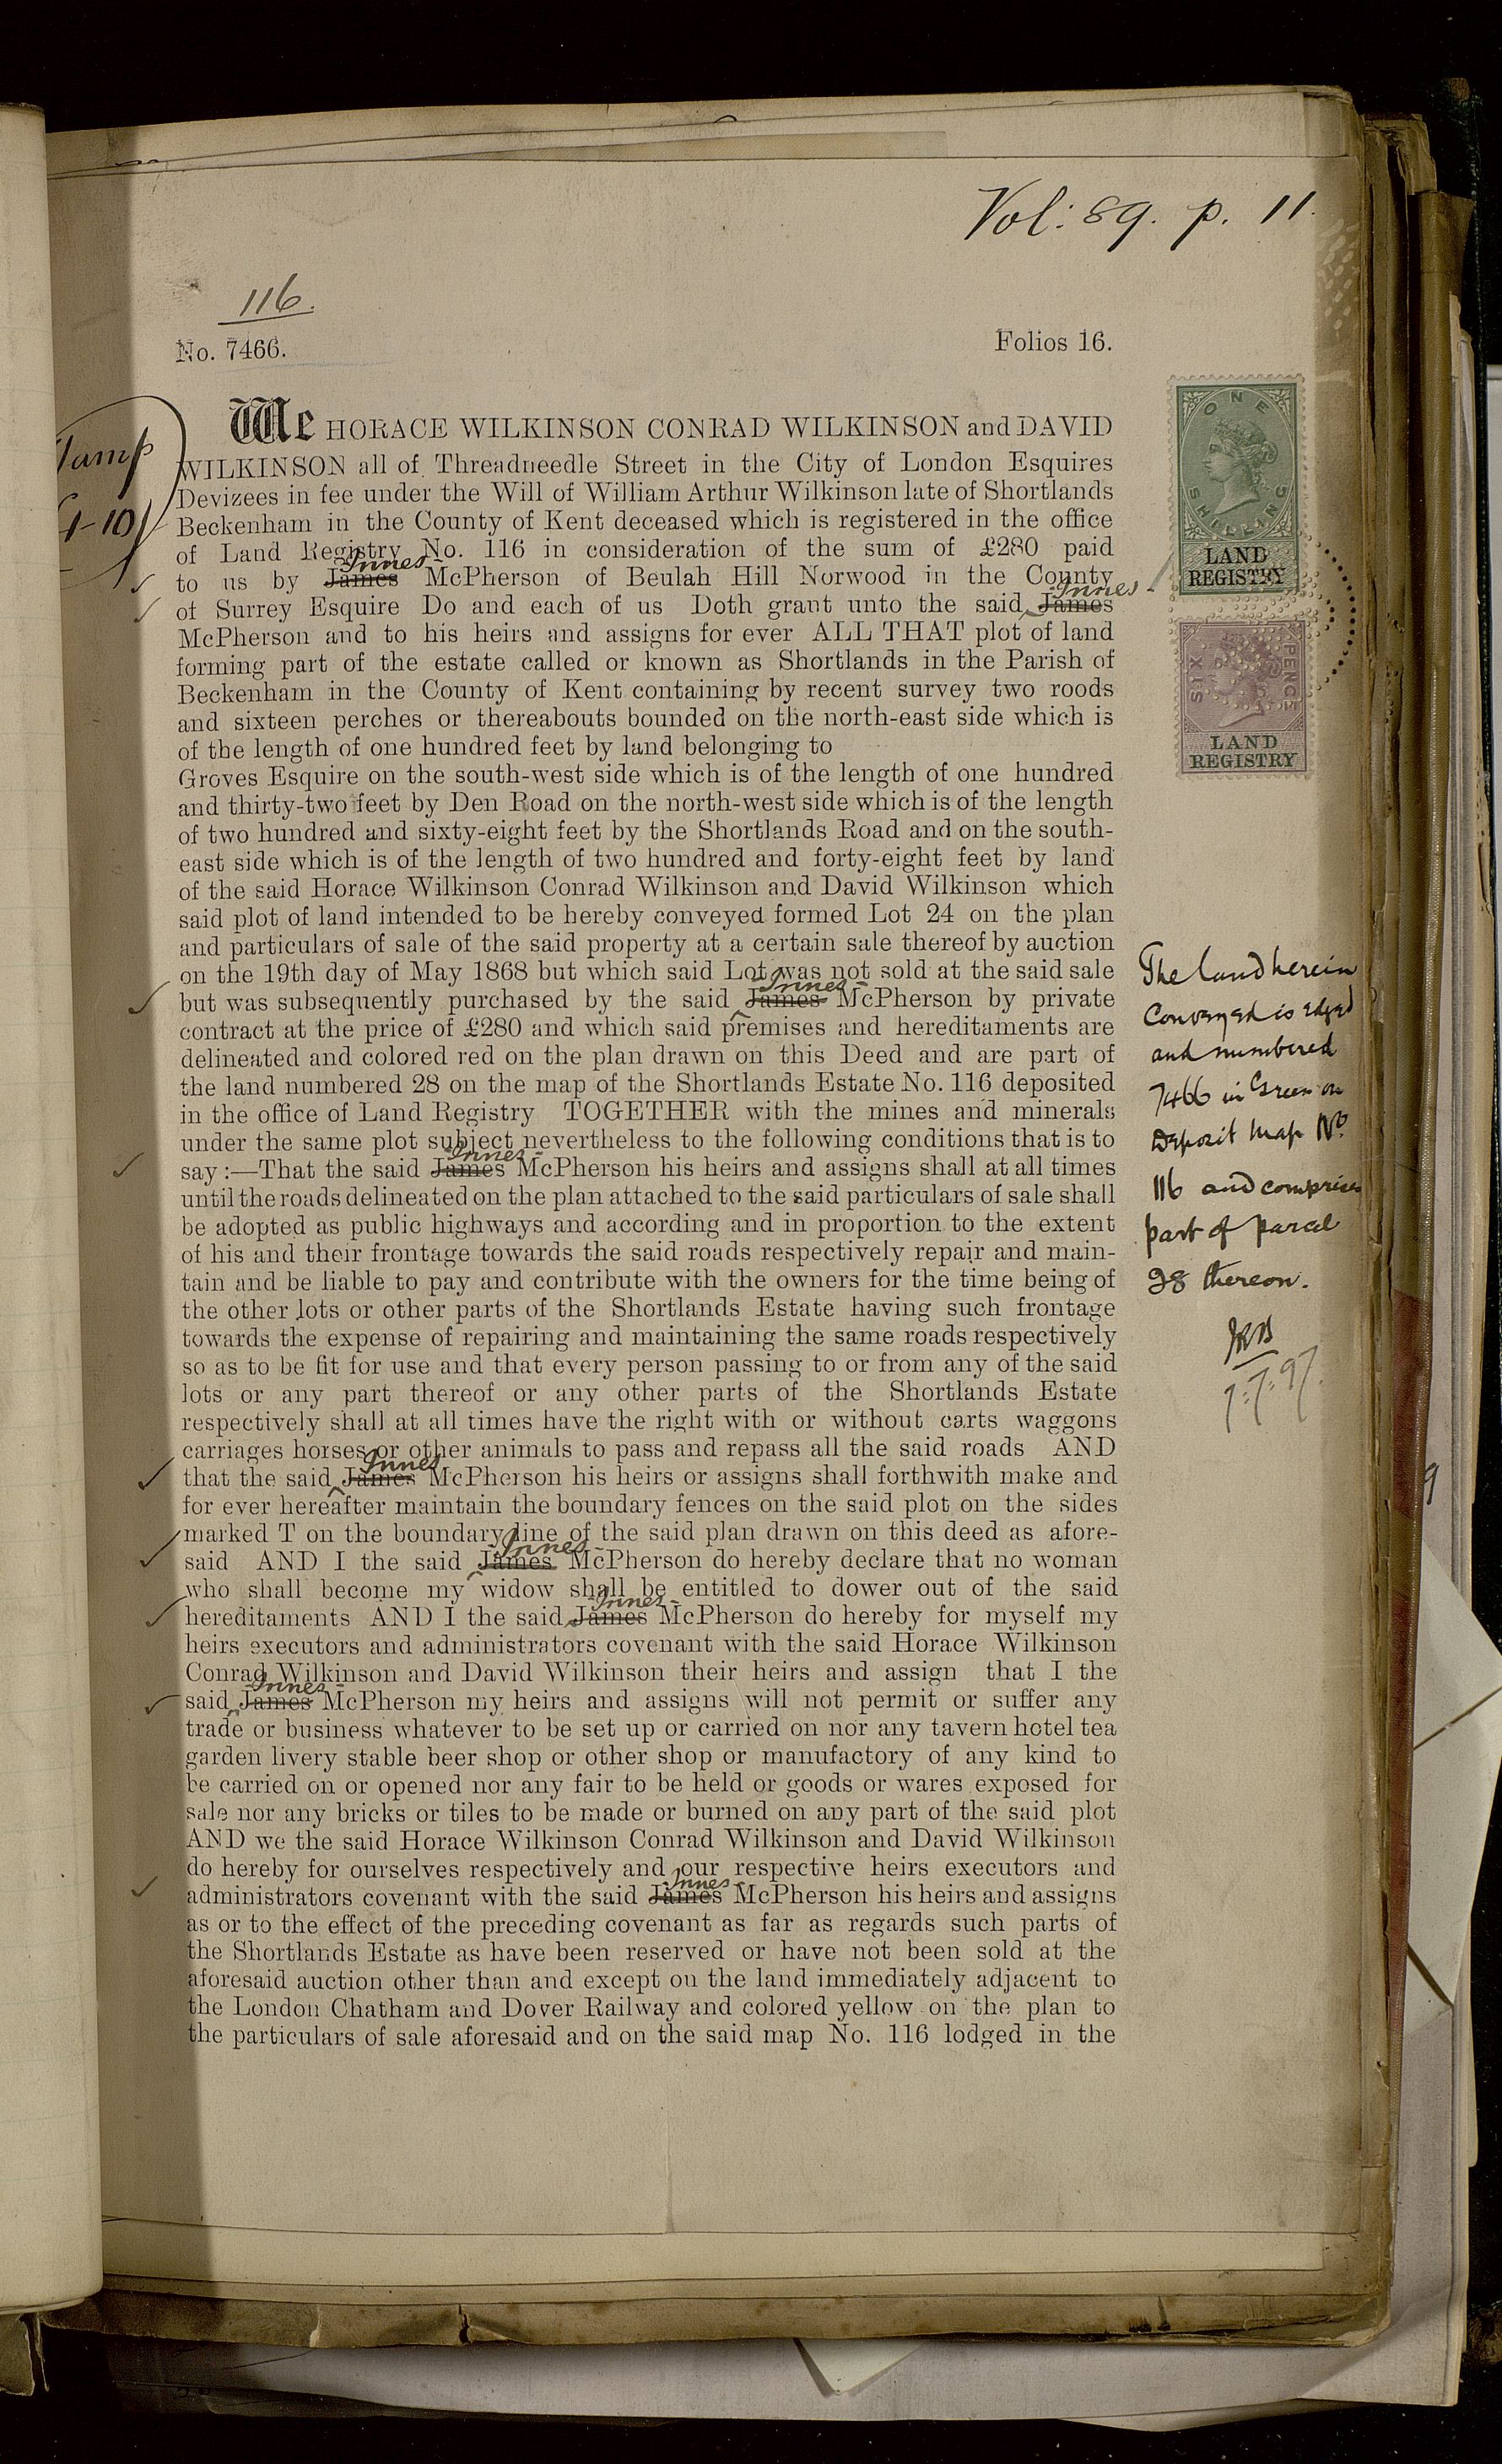 Vol: 89. p. 11.
116.
No. 7466.
Folios 16.
Stamp
4-10/-
We HORACE WILKINSON CONRAD WILKINSON and DAVID
WILKINSON all of Threadneedle Street in the City of London Esquires
Devizees in fee under the Will of William Arthur Wilkinson late of Shortlands
Beckenham in the County of Kent deceased which is registered in the office
of Land Registry No. 116 in consideration of the sum of £280 paid
-Innes-
to us by James McPherson of Beulah Hill Norwood in the County
-Innes-
of Surrey Esquire Do and each of us Doth grant unto the said James
McPherson and to his heirs and assigns for ever ALL THAT plot of land
forming part of the estate called or known as Shortlands in the Parish of
Beckenham in the County of Kent containing by recent survey two roods
and sixteen perches or thereabouts bounded on the north-east side which is
of the length of one hundred feet by land belonging to
Groves Esquire on the south-west side which is of the length of one hundred
and thirty-two feet by Den Road on the north-west side which is of the length
of two hundred and sixty-eight feet by the Shortlands Road and on the south-
east side which is of the length of two hundred and forty-eight feet by land
of the said Horace Wilkinson Conrad Wilkinson and David Wilkinson which
said plot of land intended to be hereby conveyed formed Lot 24 on the plan
and particulars of sale of the said property at a certain sale thereof by auction
on the 19th day of May 1868 but which said Lot was not sold at the said sale
-Innes-
but was subsequently purchased by the said James McPherson by private
contract at the price of £280 and which said premises and hereditaments are
delineated and colored red on the plan drawn on this Deed and are part of
the land numbered 28 on the map of the Shortlands Estate No. 116 deposited
in the office of Land Registry TOGETHER with the mines and minerals
under the same plot subject nevertheless to the following conditions that is to
-Innes-
say :—That the said James McPherson his heirs and assigns shall at all times
until the roads delineated on the plan attached to the said particulars of sale shall
be adopted as public highways and according and in proportion to the extent
of his and their frontage towards the said roads respectively repair and main-
tain and be liable to pay and contribute with the owners for the time being of
the other lots or other parts of the Shortlands Estate having such frontage
towards the expense of repairing and maintaining the same roads respectively
so as to be fit for use and that every person passing to or from any of the said
lots or any part thereof or any other parts of the Shortlands Estate
respectively shall at all times have the right with or without carts waggons
carriages horses or other animals to pass and repass all the said roads AND
-Innes-
that the said James McPherson his heirs or assigns shall forthwith make and
for ever hereafter maintain the boundary fences on the said plot on the sides
marked T on the boundary line of the said plan drawn on this deed as afore-
-Innes-
said AND I the said James McPherson do hereby declare that no woman
who shall become my widow shall be entitled to dower out of the said
-Innes-
hereditaments AND I the said James McPherson do hereby for myself my
heirs executors and administrators covenant with the said Horace Wilkinson
Conrad Wilkinson and David Wilkinson their heirs and assign that I the
-Innes-
said James McPherson my heirs and assigns will not permit or suffer any
trade or business whatever to be set up or carried on nor any tavern hotel tea
garden livery stable beer shop or other shop or manufactory of any kind to
be carried on or opened nor any fair to be held or goods or wares exposed for
sale nor any bricks or tiles to be made or burned on any part of the said plot
AND we the said Horace Wilkinson Conrad Wilkinson and David Wilkinson
do hereby for ourselves respectively and our respective heirs executors and
-Innes-
administrators covenant with the said James McPherson his heirs and assigns
as or to the effect of the preceding covenant as far as regards such parts of
the Shortlands Estate as have been reserved or have not been sold at the
aforesaid auction other than and except on the land immediately adjacent to
the London Chatham and Dover Railway and colored yellow on the plan to
the particulars of sale aforesaid and on the said map No. 116 lodged in the
ONE
SHILLING
LAND
REGISTRY
SIX PENCE
LAND
REGISTRY
The land herein
Conveyed is edged
and numbered
7466 in Green on
Deposit Map No.
116 and comprises
part of parcel
28 thereon.
7.7.97.